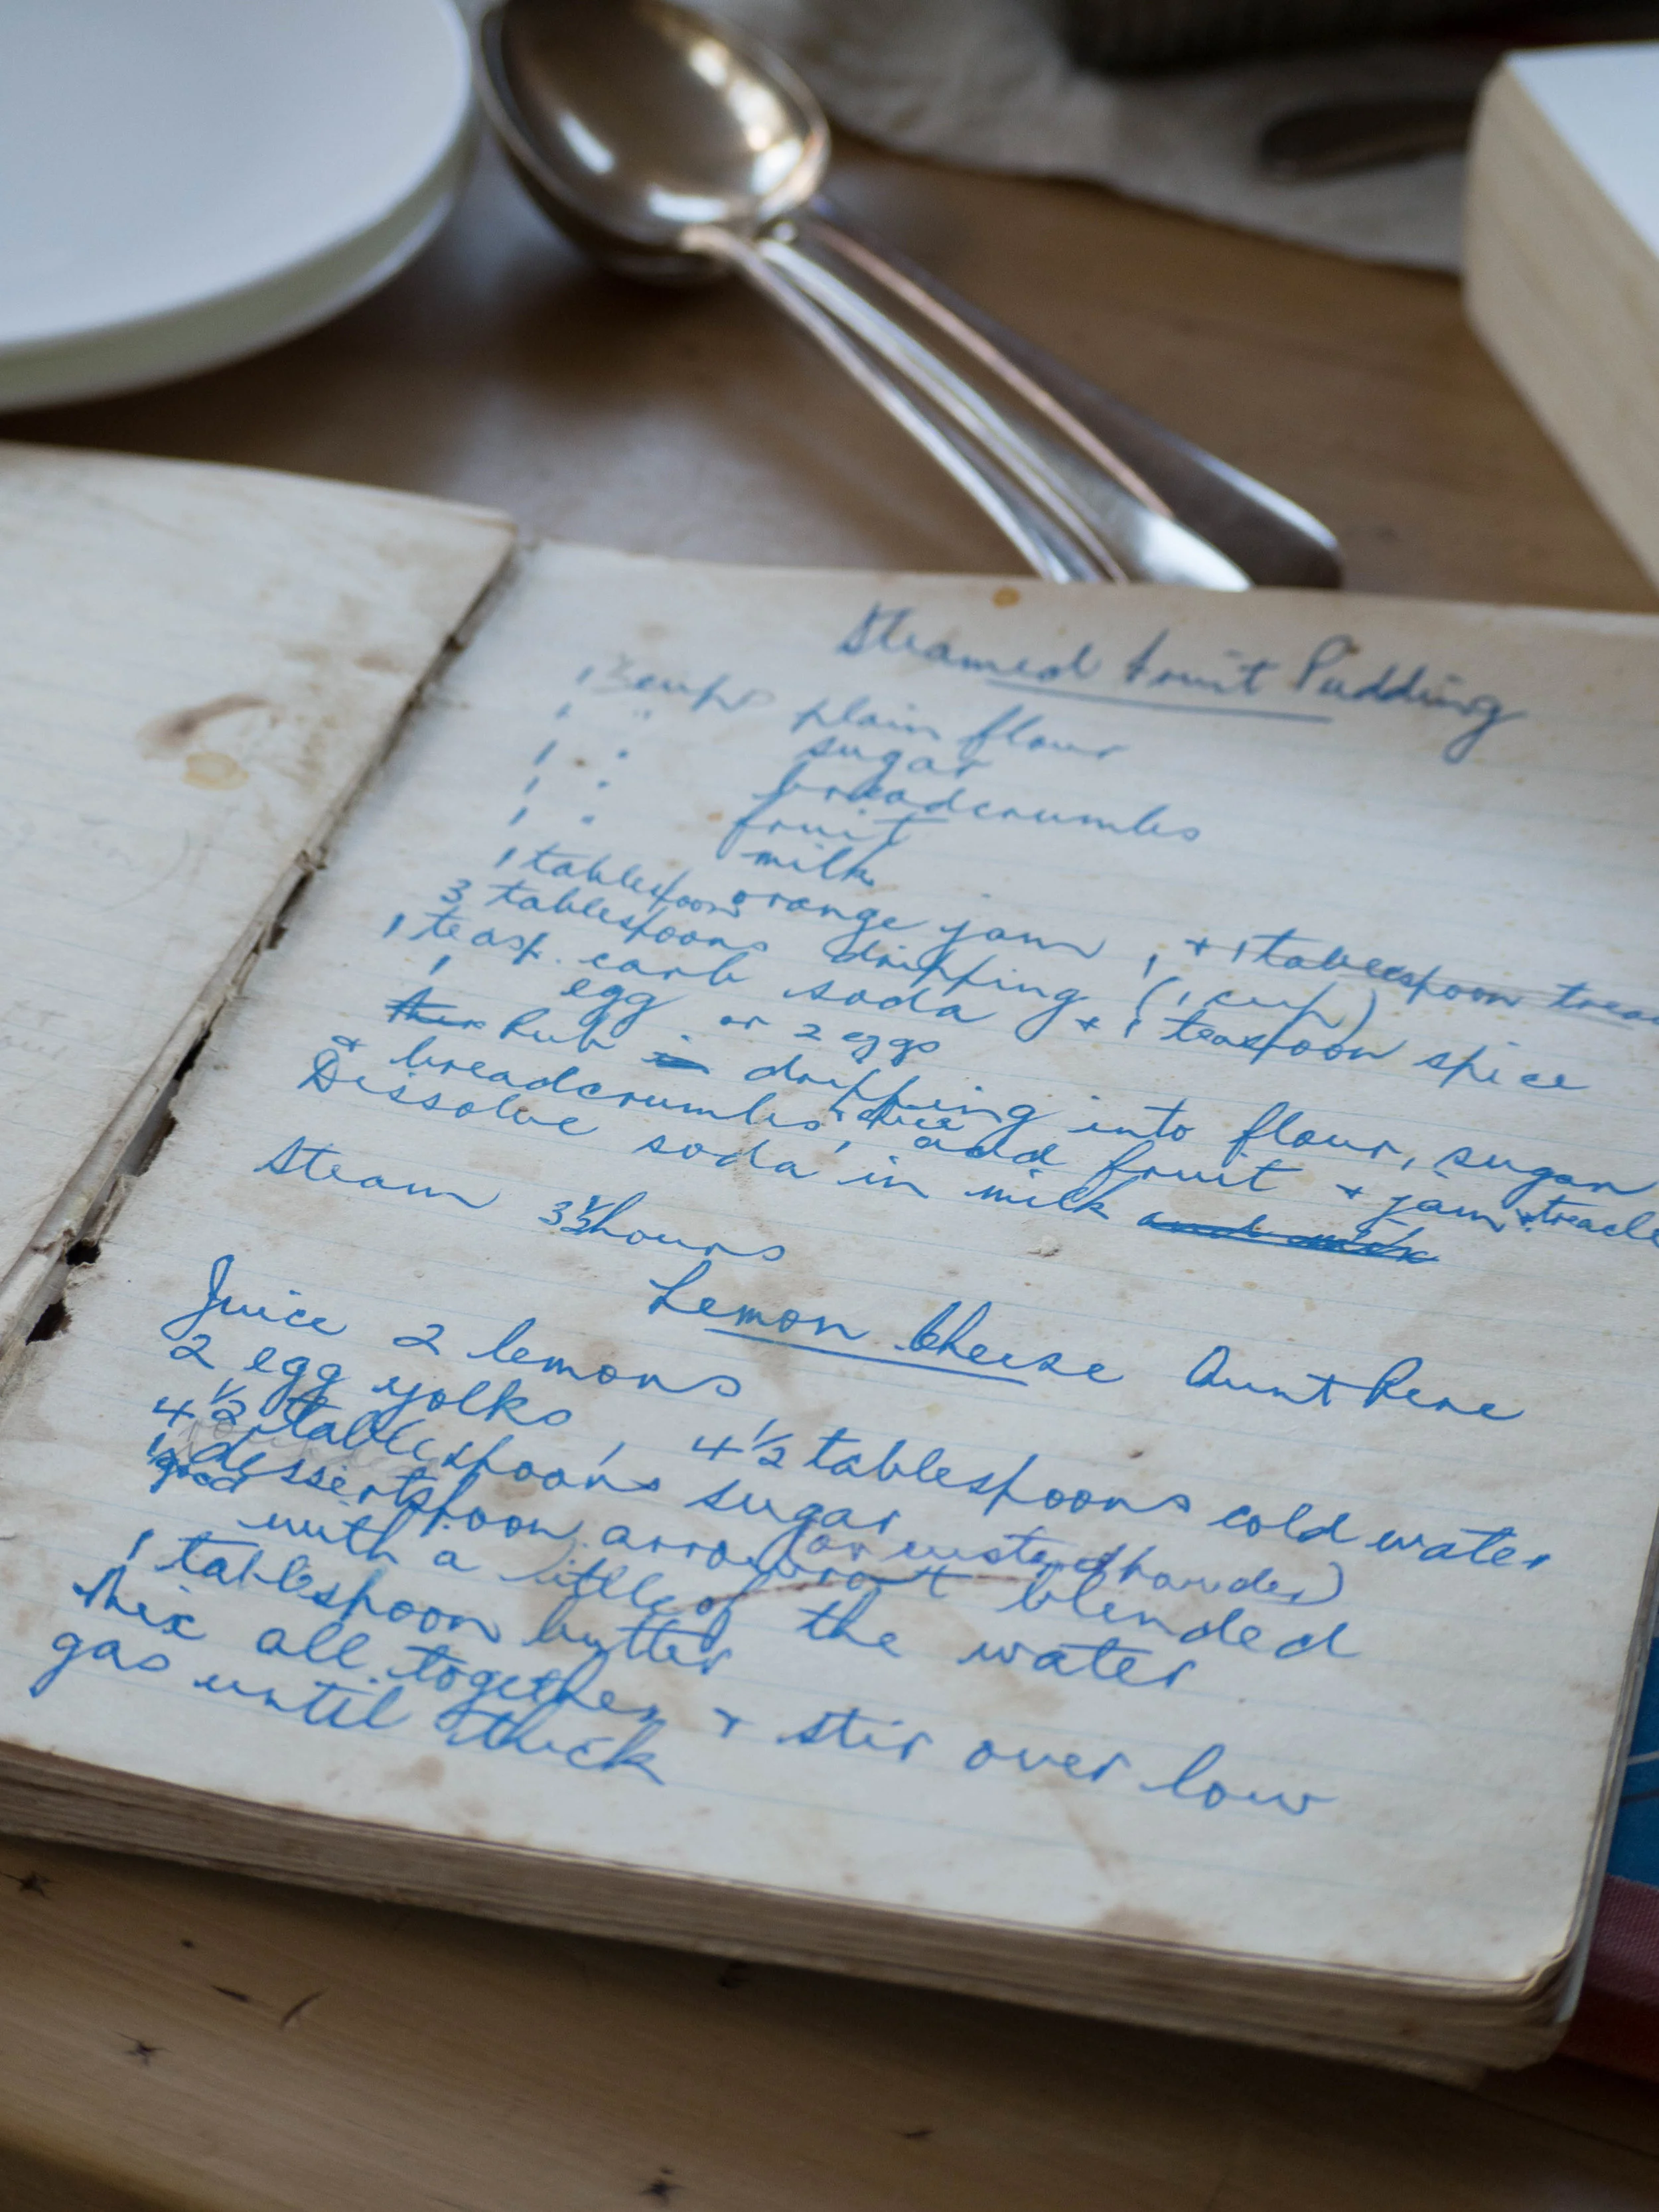 Steamed Fruit Pudding
cups plain flour
1 " sugar
1 " breadcrumbs
1 " fruit
1 " milk
1 tablespoon orange jam, + 1 tablespoon
3 tablespoons dripping (1 cup)
1 teasp. carb soda + 1 teaspoon spice
1 egg or 2 eggs
Rub dripping into flour, sugar
+ breadcrumbs, add fruit + jam + treacle
Dissolve soda in milk
Steam 3½ hours
Lemon Cheese Aunt Rene
Juice 2 lemons
2 egg yolks, 4½ tablespoons cold water
4½ tablespoons sugar (or custard powder)
1 good dessertspoon arrowroot blended
with a little of the water
1 tablespoon butter
Mix all together + stir over low
gas until thick